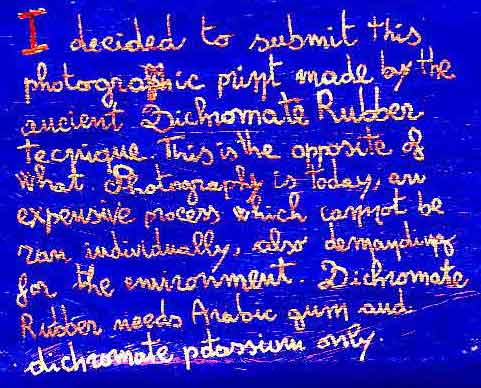 I decided to submit this
photographic print made by the
ancient Dichromate Rubber
Tecnique. This is the opposite of
what Photography is Today, an
expensive process which cannot be
ran individually, also demanding
for the environment. Dichromate
Rubber needs Arabic gum and
dichromate potassium only.